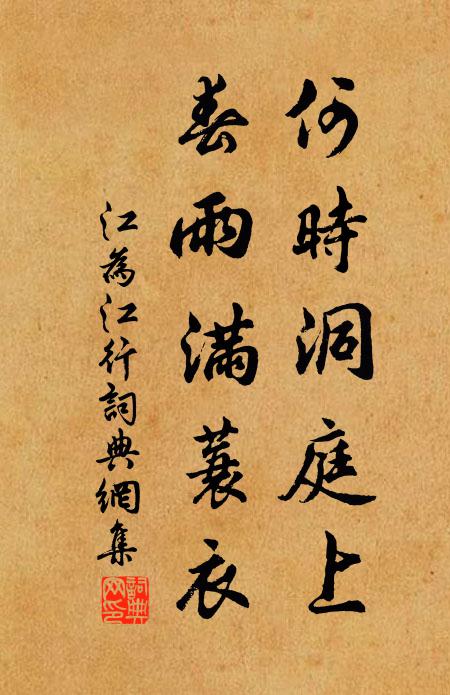 何時洞庭上
春雨滿蓑衣
江為江行詞典網集
詞典網印